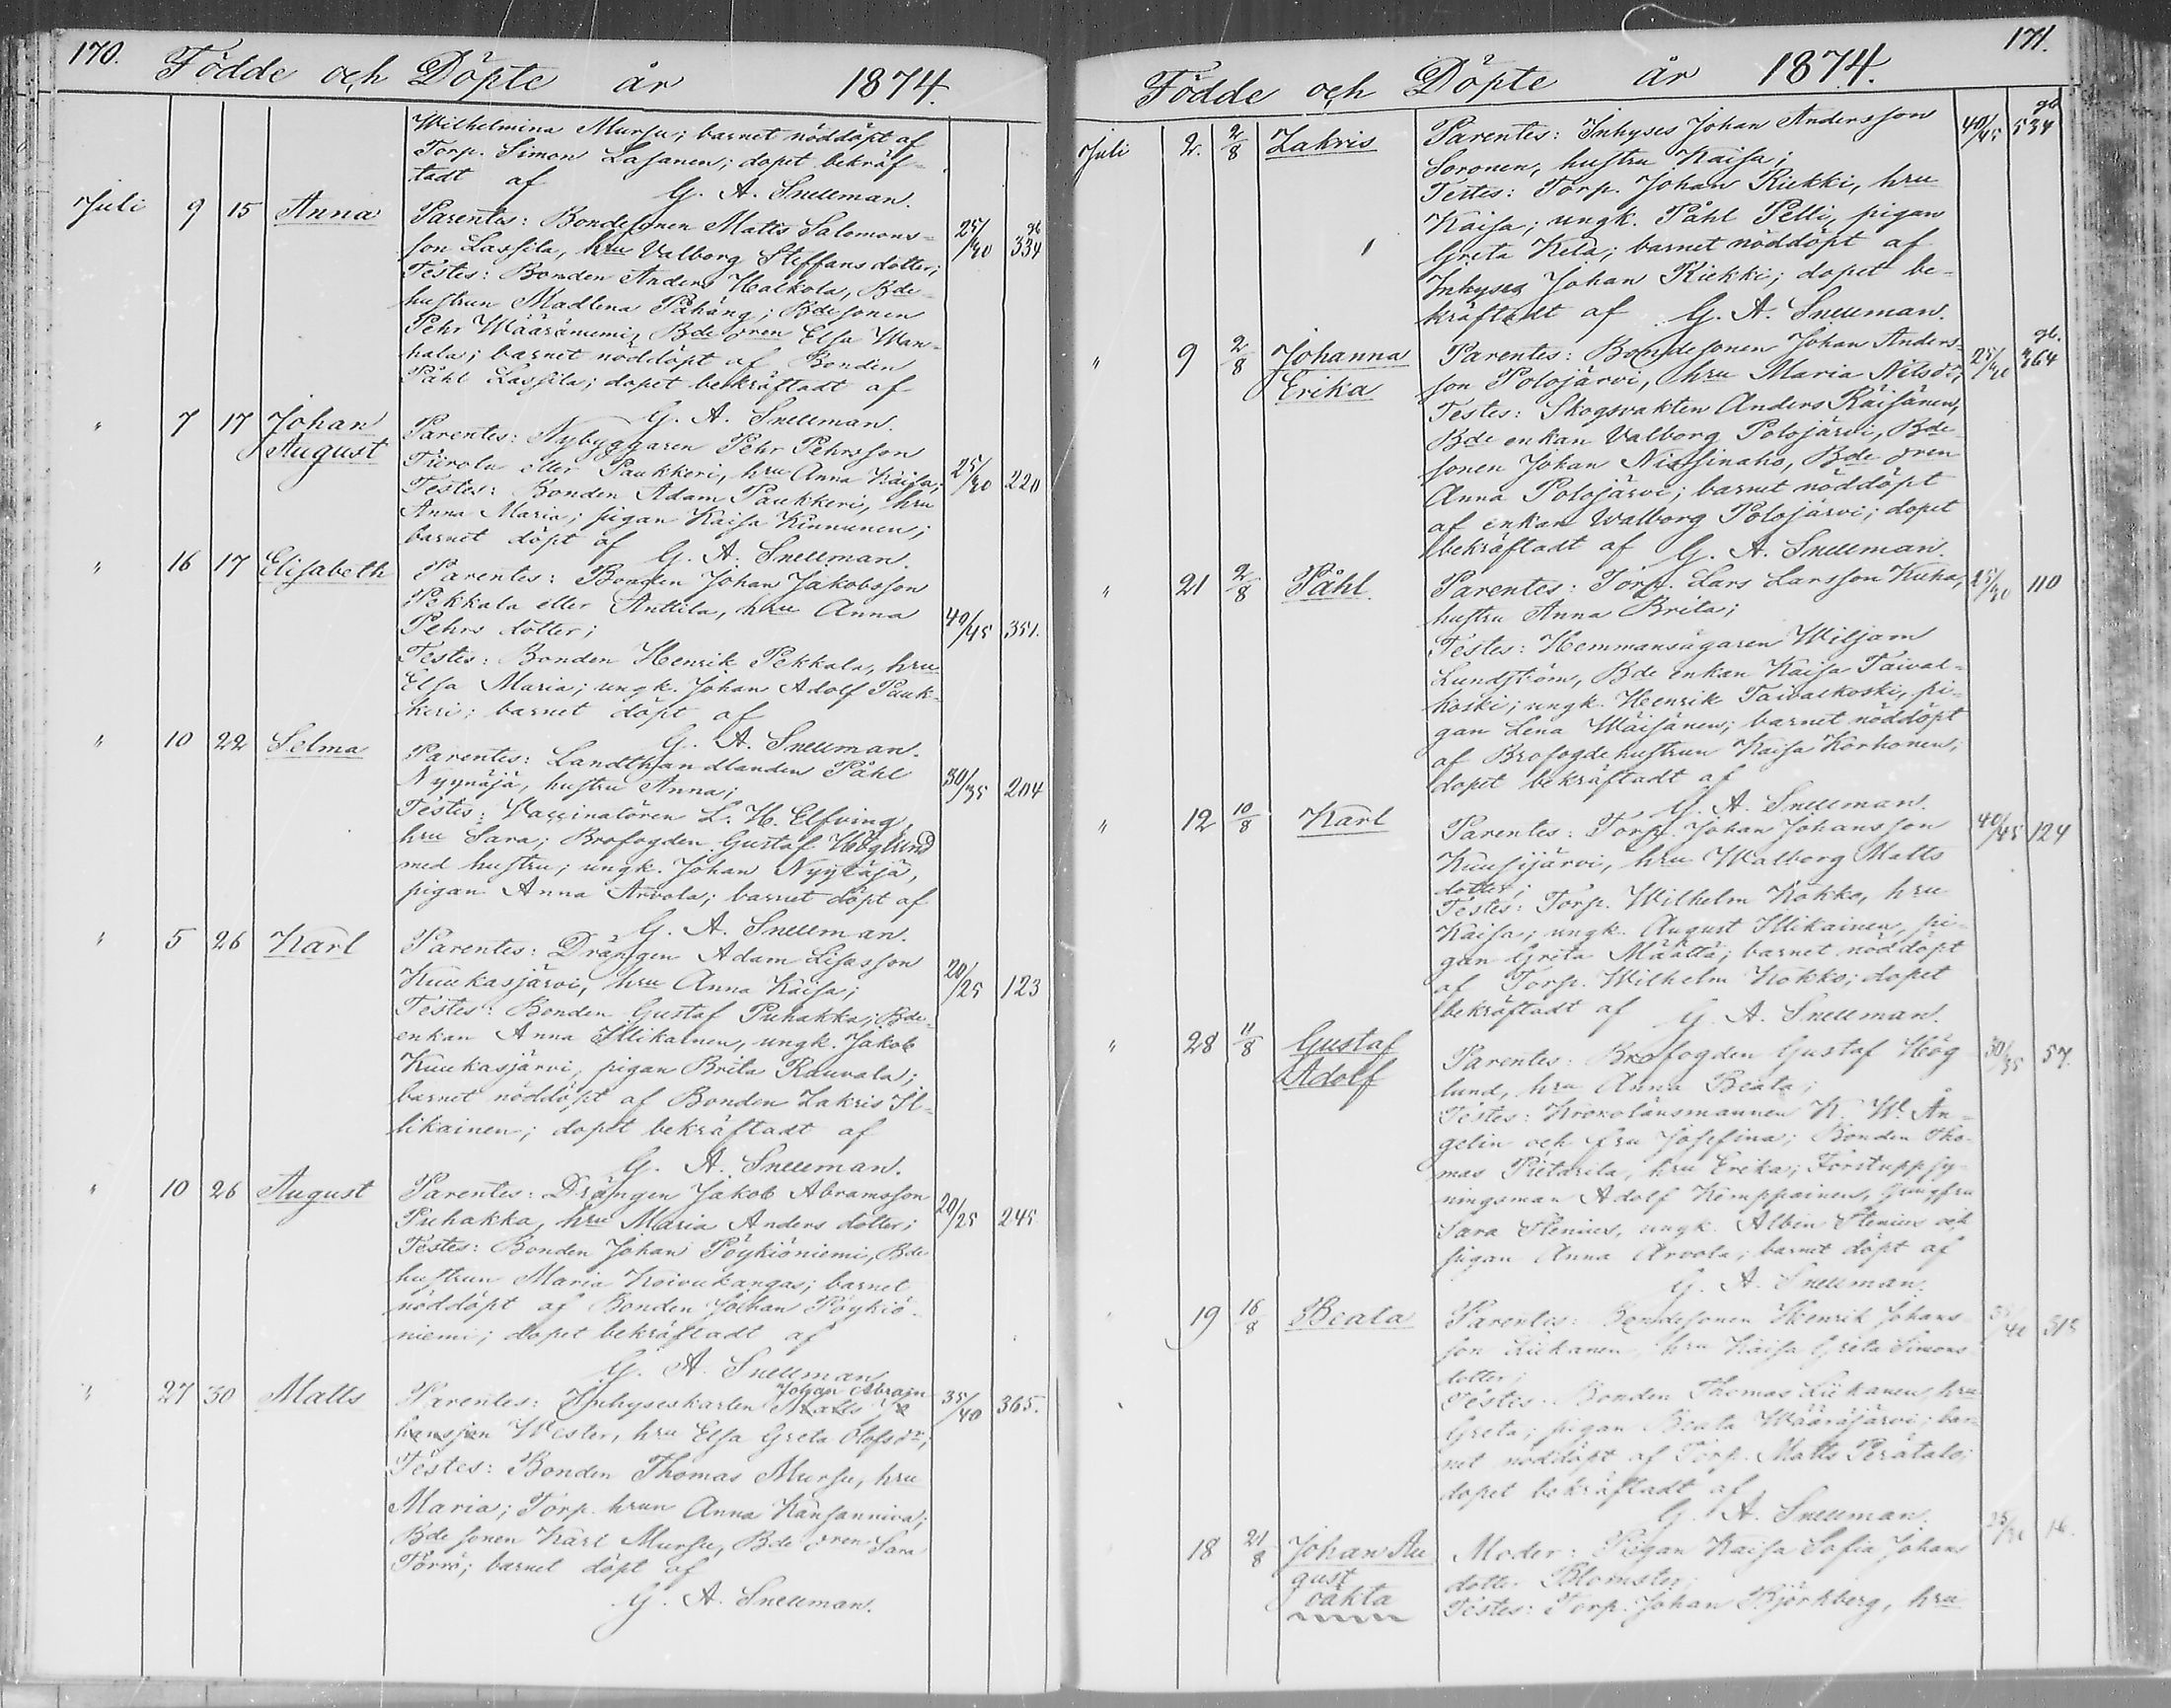 170.
Födde och Döpte år 1874.
Wilhelmina Mursu; barnet nöddöpt af
Torp. Simon Lasanen; dopet bekräf-
tadt af G. A. Snellman.
Juli 9 15 Anna Parentes: Bondesonen Matts Salomons- 25/30 gb 334
son Lassila, hru Valborg Steffans dotter;
Testes: Bonden Anders Halkola, Bde
hustrun Madlena Påhäng; Bdesonen
Pehr Wääräniemi, Bde dren Elsa Wan-
hala; barnet nöddöpt af Bonden
Påhl Lassila; dopet bekräftadt af
G. A. Snellman.
" 7 17 Johan Parentes: Nybyggaren Pehr Pehrsson
August Tiirola eller Paukkeri, hru Anna Kaisa; 25/30 220
Testes: Bonden Adam Paukkeri, hru
Anna Maria; pigan Kaisa Kinnunen;
barnet döpt af G. A. Snellman.
" 16 17 Elisabeth Parentes: Bonden Johan Jakobsson
Pekkala eller Anttila, hru Anna 40/45 351.
Pehrs dotter;
Testes: Bonden Henrik Pekkala, hru
Elsa Maria; ungk. Johan Adolf Pauk-
keri; barnet döpt af
G. A. Snellman.
" 10 22 Selma Parentes: Landthandlanden Påhl 30/35 204
Nyynäjä, hustru Anna;
Testes: Vaccinatören L. H. Elfving,
hru Sara; Brofogden Gustaf Höglund
med hustru; ungk. Johan Nyynäjä,
pigan Anna Arvola; barnet döpt af
G. A. Snellman.
" 5 26 Karl Parentes: Drängen Adam Lisasson 20/25 123
Kuukasjärvi, hru Anna Kaisa;
Testes: Bonden Gustaf Puhakka; Bde-
enkan Anna Illikainen, ungk. Jakob
Kuukasjärvi, pigan Brita Rauvala;
barnet nöddöpt af Bonden Zakris Il-
likainen; dopet bekräftadt af
G. A. Snellman.
" 10 26 August Parentes: Drängen Jakob Abramsson 20/25 245
Puhakka, hru Maria Anders dotter;
Testes: Bonden Johan Pöykiöniemi, Bde
hustrun Maria Koivukangas; barnet
nöddöpt af Bonden Johan Pöykiö-
niemi; dopet bekräftadt af
G. A. Snellman
Johan Abram
" 27 30 Matts Parentes: Inhyseskarlen Matts Jo 35/40 365.
hansson Wester, hru Elsa Greta Olofs dr;
Testes: Bonden Thomas Mursu, hru
Maria; Torp. hrun Anna Kansanniva;
Bde sonen Karl Mursu, Bde dren Sara
Törrö; barnet döpt af
G. A. Snellman.
171.
Födde och Döpte år 1874.
Juli 2. 2/8 Zakris Parentes: Inhyses Johan Andersson 40/45 gb 534
Soronen, hustru Kaisa;
Testes: Torp. Johan Riekki, hru
Kaisa; ungk. Påhl Pelli, pigan
Greta Kela; barnet nöddöpt af
Inhyses Johan Riekki; dopet be-
kräftadt af G. A. Snellman.
" 9 2/8 Johanna Parentes: Bondesonen Johan Anders- 25/30 gb. 364
Erika son Polojärvi, hru Maria Nilsdr;
Testes: Skogsvakten Anders Räisänen,
Bde enkan Valborg Polojärvi, Bde-
sonen Johan Nissinaho, Bde dren
Anna Polojärvi; barnet nöddöpt
af enkan Walborg Polojärvi; dopet
bekräftadt af G. A. Snellman.
" 21 2/8 Påhl Parentes: Torp. Lars Larsson Kuha, 25/30 110
hustru Anna Brita;
Testes: Hemmansägaren Wiljam
Lundström, Bde enkan Kaisa Taival-
koski; ungk. Henrik Taivalkoski, pi-
gan Lena Wäisänen; barnet nöddöpt
af Brofogdehustrun Kaisa Korhonen;
dopet bekräftadt af
G. A. Snellman.
" 12 10/8 Karl Parentes: Torp. Johan Johansson 40/45 124
Kuusijärvi, hru Walborg Matts
dotter;
Testes: Torp. Wilhelm Kokko, hru
Kaisa; ungk. August Illikainen, pi-
gan Greta Määttä; barnet nöddöpt
af Torp. Wilhelm Kokko; dopet
bekräftadt af G. A. Snellman.
" 28 11/8 Gustaf Parentes: Brofogden Gustaf Hög 30/35 57.
Adolf lund, hru Anna Beata;
Testes: Kronolänsmannen K. W. Än-
gelin och fru Josefina; Bonden Tho-
mas Pietarila, hru Erika; Forstuppsy-
ningsman Adolf Kemppainen, Jungfru
Sara Stenius, ungk. Albin Stenius och
pigan Anna Arvola; barnet döpt af
G. A. Snellman.
19 16/8 Beata Parentes: Bondesonen Henrik Johans
son Liikanen, hru Kaisa Greta Simons
dotter;
Testes: Bonden Thomas Liikanen, hru
Greta; pigan Beata Wääräjärvi; bar-
net nöddöpt af Torp. Matts Perätalo;
dopet bekräftadt af
G. A. Snellman.
18 21/8 Johan Au Moder: Pigan Kaisa Sofia Johans
gust dotter Blomster;
oäkta Testes: Torp. Johan Björkberg, hru